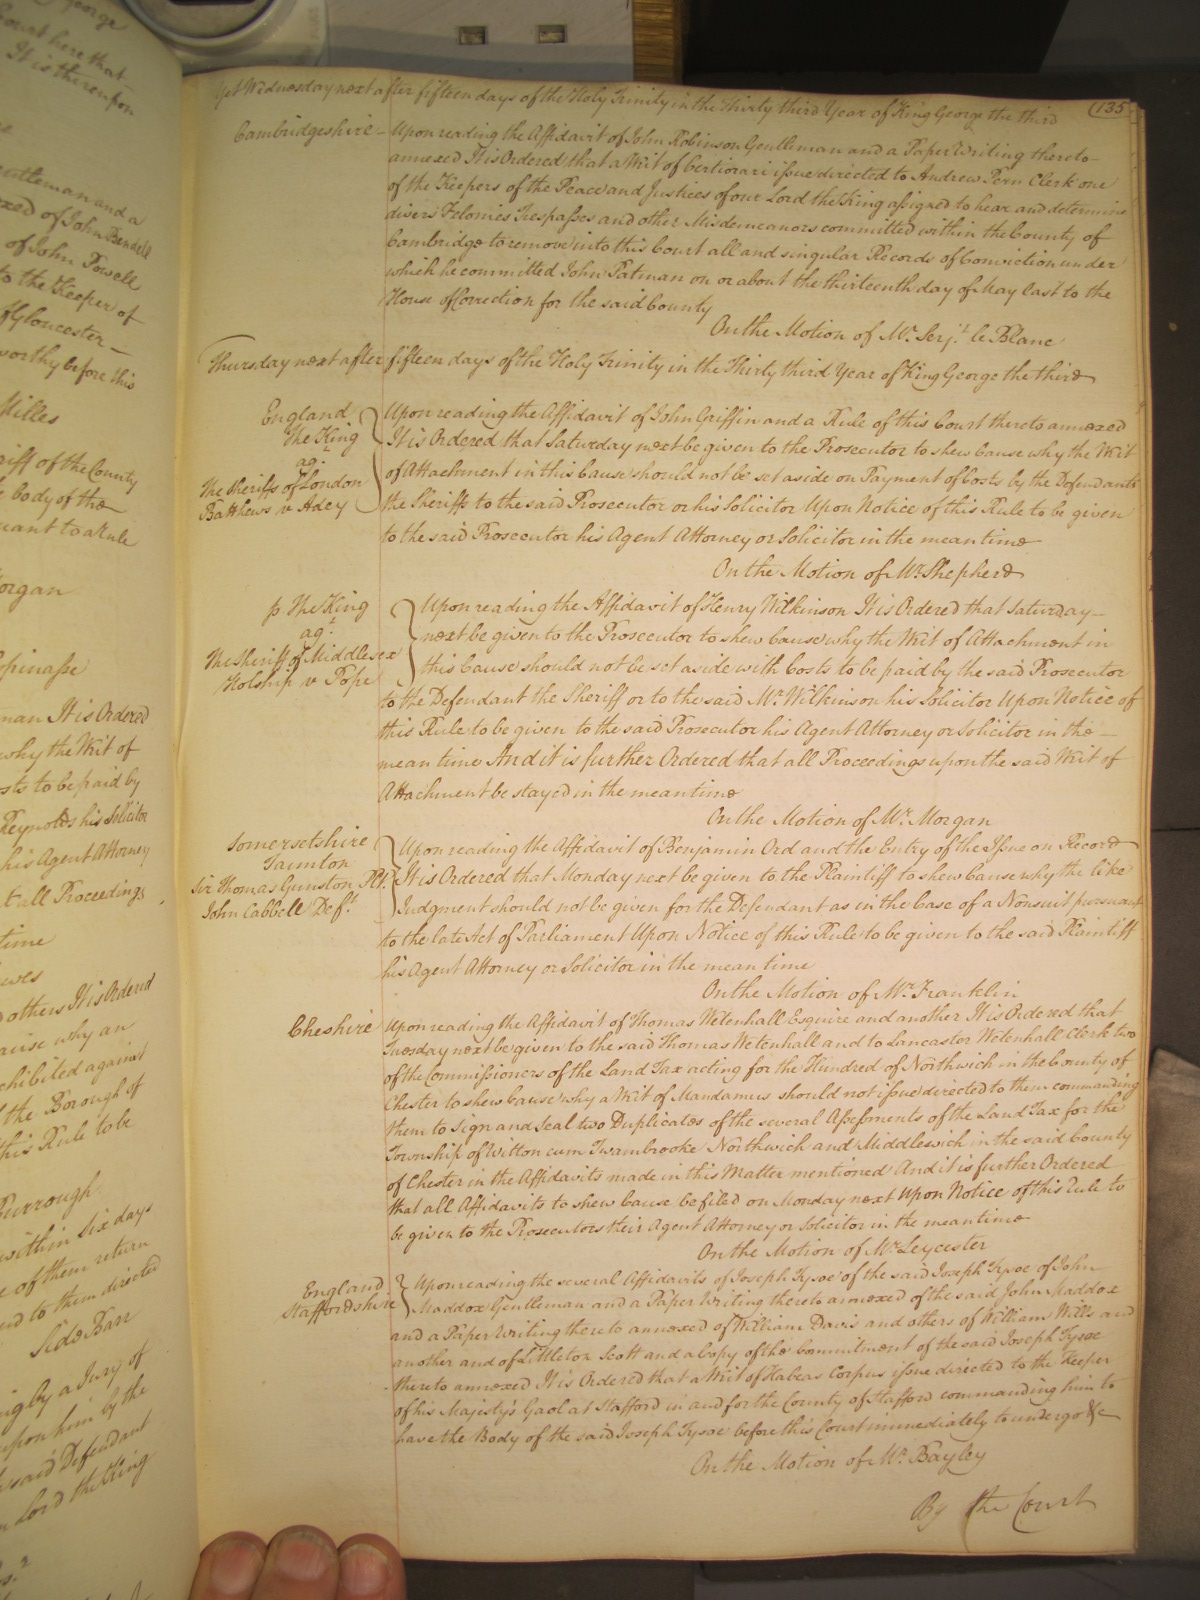 George
Court here that
It is thereupon
Gentleman and a
of John Bendell
of John Powell
to the Keeper of
of Gloucester
worthy before this
Milles
riff of the County
Body of the
suant to a Rule
organ
spinasse
man It is Ordered
why the Writ of
sts to be paid by
Reynolds his Solicitor
his Agent Attorney
t all Proceedings
time
others It is Ordered
ause why an
xhibited against
the Borough of
this Rule to be
Burrough
within six days
e of them return
to them directed
Side Bar
ng by a Jury of
upon him by the
said Defendant
Lord the King
135
Yet Wednesday next after fifteen days of the Holy Trinity in the Thirty third Year of King George the third
Cambridgeshire - Upon reading the Affidavit of John Robinson Gentleman and a Paper Writing thereto
annexed It is Ordered that a Writ of Certiorari issue directed to Andrew Pern Clerk one
of the Keepers of the Peace and Justices of our Lord the King assigned to hear and determine
divers Felonies Trespasses and other Misdemeanors committed within the County of
Cambridge to remove into this Court all and singular Records of Conviction under
which he committed John Patman on or about the thirteenth day of May last to the
House of Correction for the said County
On the Motion of Mr. Serjt. le Blanc
Thursday next after fifteen days of the Holy Trinity in the Thirty third Year of King George the third
England
The King
agt.
The Sheriffs of London
Batthews v Adey
Upon reading the Affidavit of John Griffin and a Rule of this Court thereto annexed
It is Ordered that Saturday next be given to the Prosecutor to shew Cause why the Writ
of Attachment in this Cause should not be set aside on Payment of Costs by the Defendants
the Sheriffs to the said Prosecutor or his Solicitor Upon Notice of this Rule to be given
to the said Prosecutor his Agent Attorney or Solicitor in the mean time
On the Motion of Mr. Shepherd
p The King
agt.
The Sheriff of Middlesex
Holship v Pope
Upon reading the Affidavit of Henry Wilkinson It is Ordered that Saturday
next be given to the Prosecutor to shew Cause why the Writ of Attachment in
this Cause should not be set aside with Costs to be paid by the said Prosecutor
to the Defendant the Sheriff or to the said Mr. Wilkinson his Solicitor Upon Notice of
this Rule to be given to the said Prosecutor his Agent Attorney or Solicitor in the
mean time And it is further Ordered that all Proceedings upon the said Writ of
Attachment be stayed in the mean time
On the Motion of Mr. Morgan
Somersetshire
Taunton
Sir Thomas Gunston Plt.
John Cabbell Deft.
Upon reading the Affidavit of Benjamin Ord and the Entry of the Issue on Record
It is Ordered that Monday next be given to the Plaintiff to shew Cause why the like
Judgment should not be given for the Defendant as in the Case of a Nonsuit pursuant
to the late Act of Parliament Upon Notice of this Rule to be given to the said Plaintiff
his Agent Attorney or Solicitor in the mean time
On the Motion of Mr. Franklin
Cheshire Upon reading the Affidavit of Thomas Wetenhall Esquire and another It is Ordered that
Tuesday next be given to the said Thomas Wetenhall and to Lancaster Wetenhall Clerk two
of the Commissioners of the Land Tax acting for the Hundred of Northwich in the County of
Chester to shew Cause why a Writ of Mandamus should not issue directed to them commanding
them to sign and seal two Duplicates of the several Assessments of the Land Tax for the
Township of Witton cum Twambrooke Northwich and Middlewich in the said County
of Chester in the Affidavits made in this Matter mentioned And it is further Ordered
that all Affidavits to shew Cause be filed on Monday next Upon Notice of this Rule to
be given to the Prosecutors their Agent Attorney or Solicitor in the mean time
On the Motion of Mr. Leycester
England
Staffordshire
Upon reading the several Affidavits of Joseph Tysoe of the said Joseph Tysoe of John
Maddox Gentleman and a Paper Writing thereto annexed of the said John Maddox
and a Paper Writing thereto annexed of William Davis and others of William Wills and
another and of Littleton Scott and a Copy of the Commitment of the said Joseph Tysoe
thereto annexed It is Ordered that a Writ of Habeas Corpus issue directed to the Keeper
of his Majesty's Gaol at Stafford in and for the County of Stafford commanding him to
have the Body of the said Joseph Tysoe before this Court immediately to undergo &c
On the Motion of Mr. Bayley
By the Court